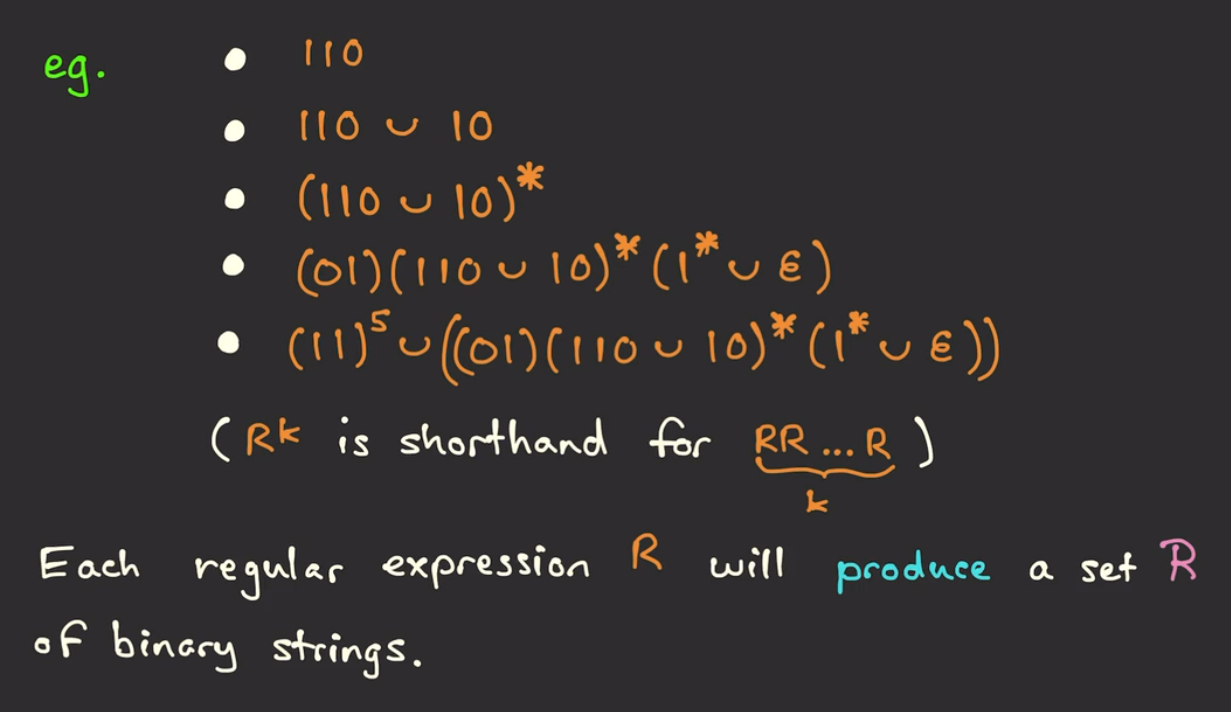 eg. • 110
• 110 ∪ 10
• (110 ∪ 10)*
• (01)(110 ∪ 10)*(1* ∪ ε)
• (11)⁵ ∪ ((01)(110 ∪ 10)*(1* ∪ ε))
(Rᵏ is shorthand for RR...R)
k
Each regular expression R will produce a set R
of binary strings.